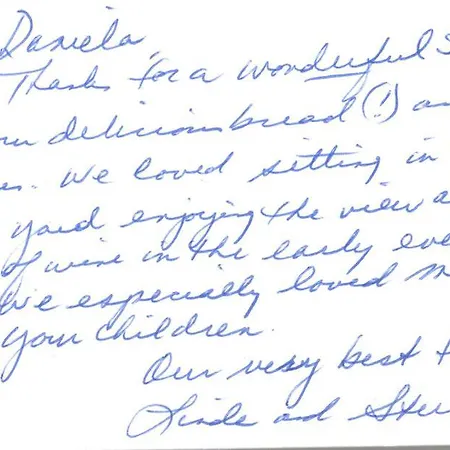 Daniela,
Thanks for a wonderful s
delicious bread (!) an
We loved sitting in
yard enjoying the view a
of wine in the early eve
We especially loved m
your children.
Our very best t
Linda and Stev